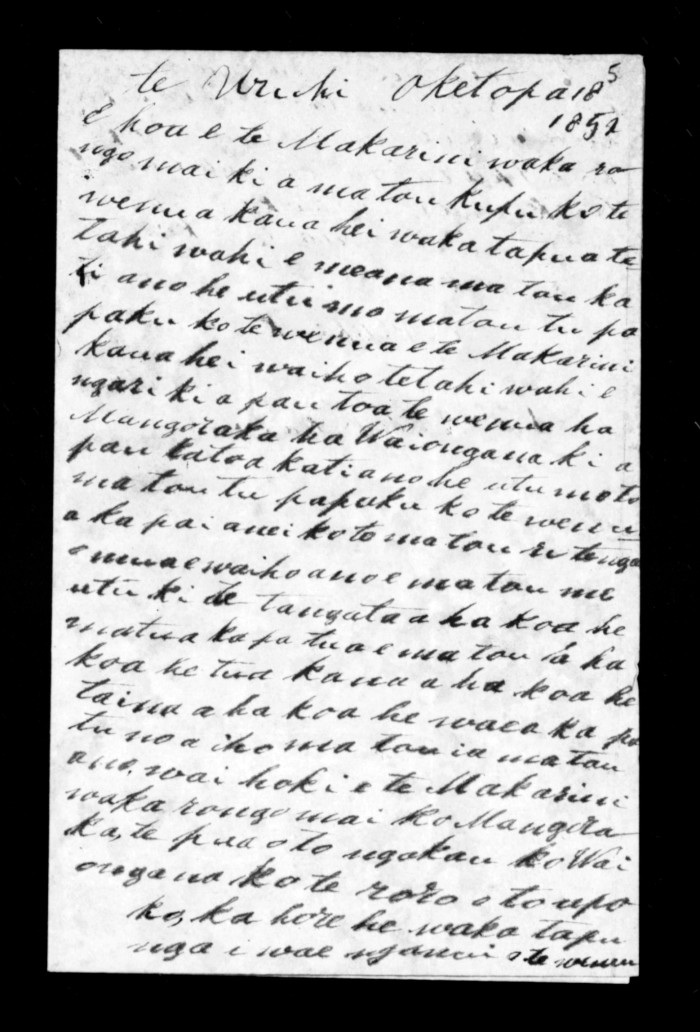 te Uruhi Oketopa 18 5
1852
E hoa e te Makarini waka ro
ngo mai ki a matou kupu ko te
wenua kaua hei waka tapua te
tahi wahi e meana matou ka
ti ano he utu mo matou tu pa
paku ko te wenua e te Makarini
kaua hei waiho tetahi wahi e
ngari ki a pau toa te wenua ha
Mangoraka ha Waiongana ki a
pau katoa kati ano he utu mo to
matou tu papaku ko te wenu
a ka pai anei ko te matou ri tenga
o mua e waiho ano e matou me
utu ki te tangata a ha koa he
matua ka patua e matou a ha
koa he tua kana a ha koa he
taina a ha koa he waea ka pa
tu noa iho matou ia matou
ano, wai hoki e te Makarini
waka rongo mai ko Mangora
ka, te pua o to ngakau ko Wai
ongana ko te roro o to upo
ko, ka hore he waka tapu
nga i wae nganui o te wenua